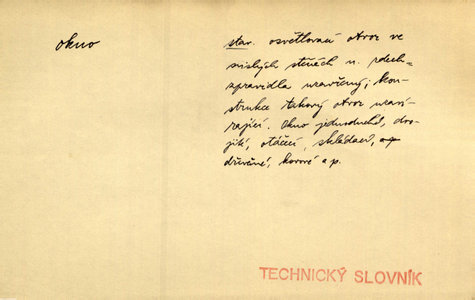 okno
stav. osvětlovací otvor ve
svislých stěnách n. zdech
zpravidla uzavřený; kon-
strukce takový otvor uzaví-
rající. Okno jednoduché, dvo-
jité, otáčecí, skládací,
dřevěné, kovové a p.
TECHNICKÝ SLOVNÍK